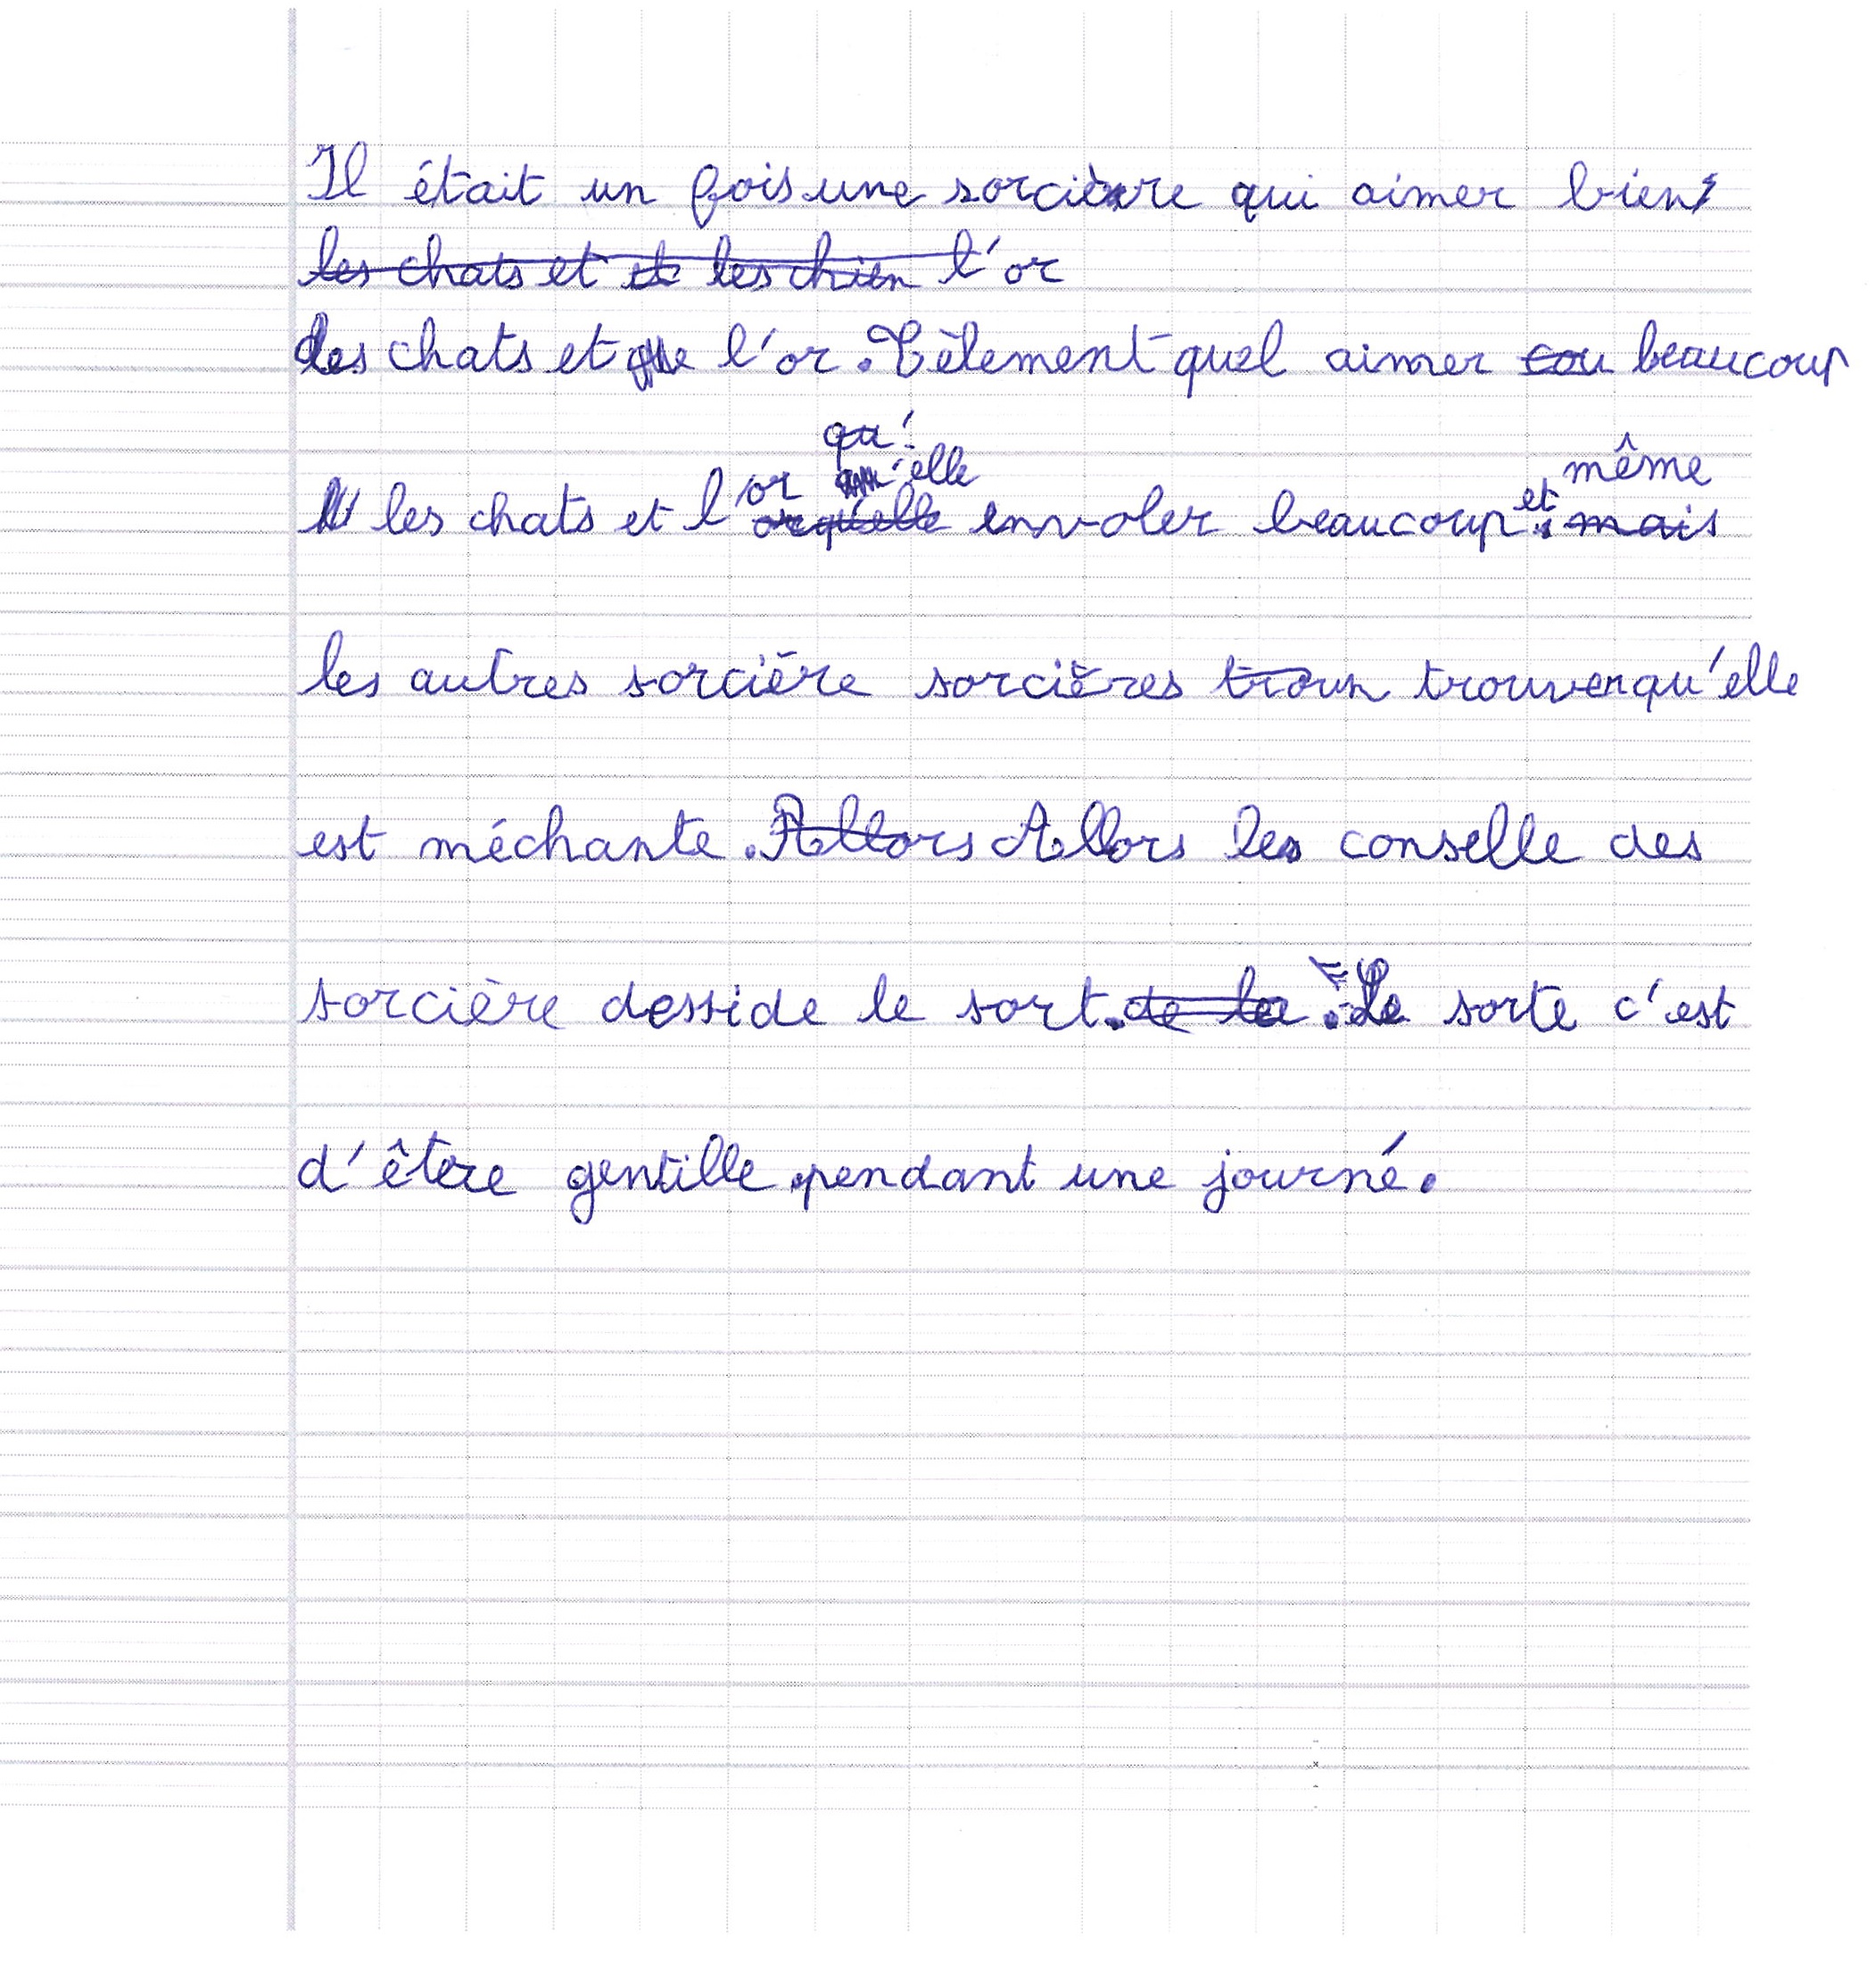 Il était un fois une sorcière qui aimer bien
les chats et et les chien l'or
les chats et que l'or. Tèlement quel aimer cou beaucoup
qu'
or elle même
les chats et l' or qu'elle envoler beaucoup et mais
les autres sorcière sorcières troun trouven qu'elle
est méchante. Allors Allors les conselle des
sorcière desside le sort. de la . Le sorte c'est
d'être gentille pendant une journé.